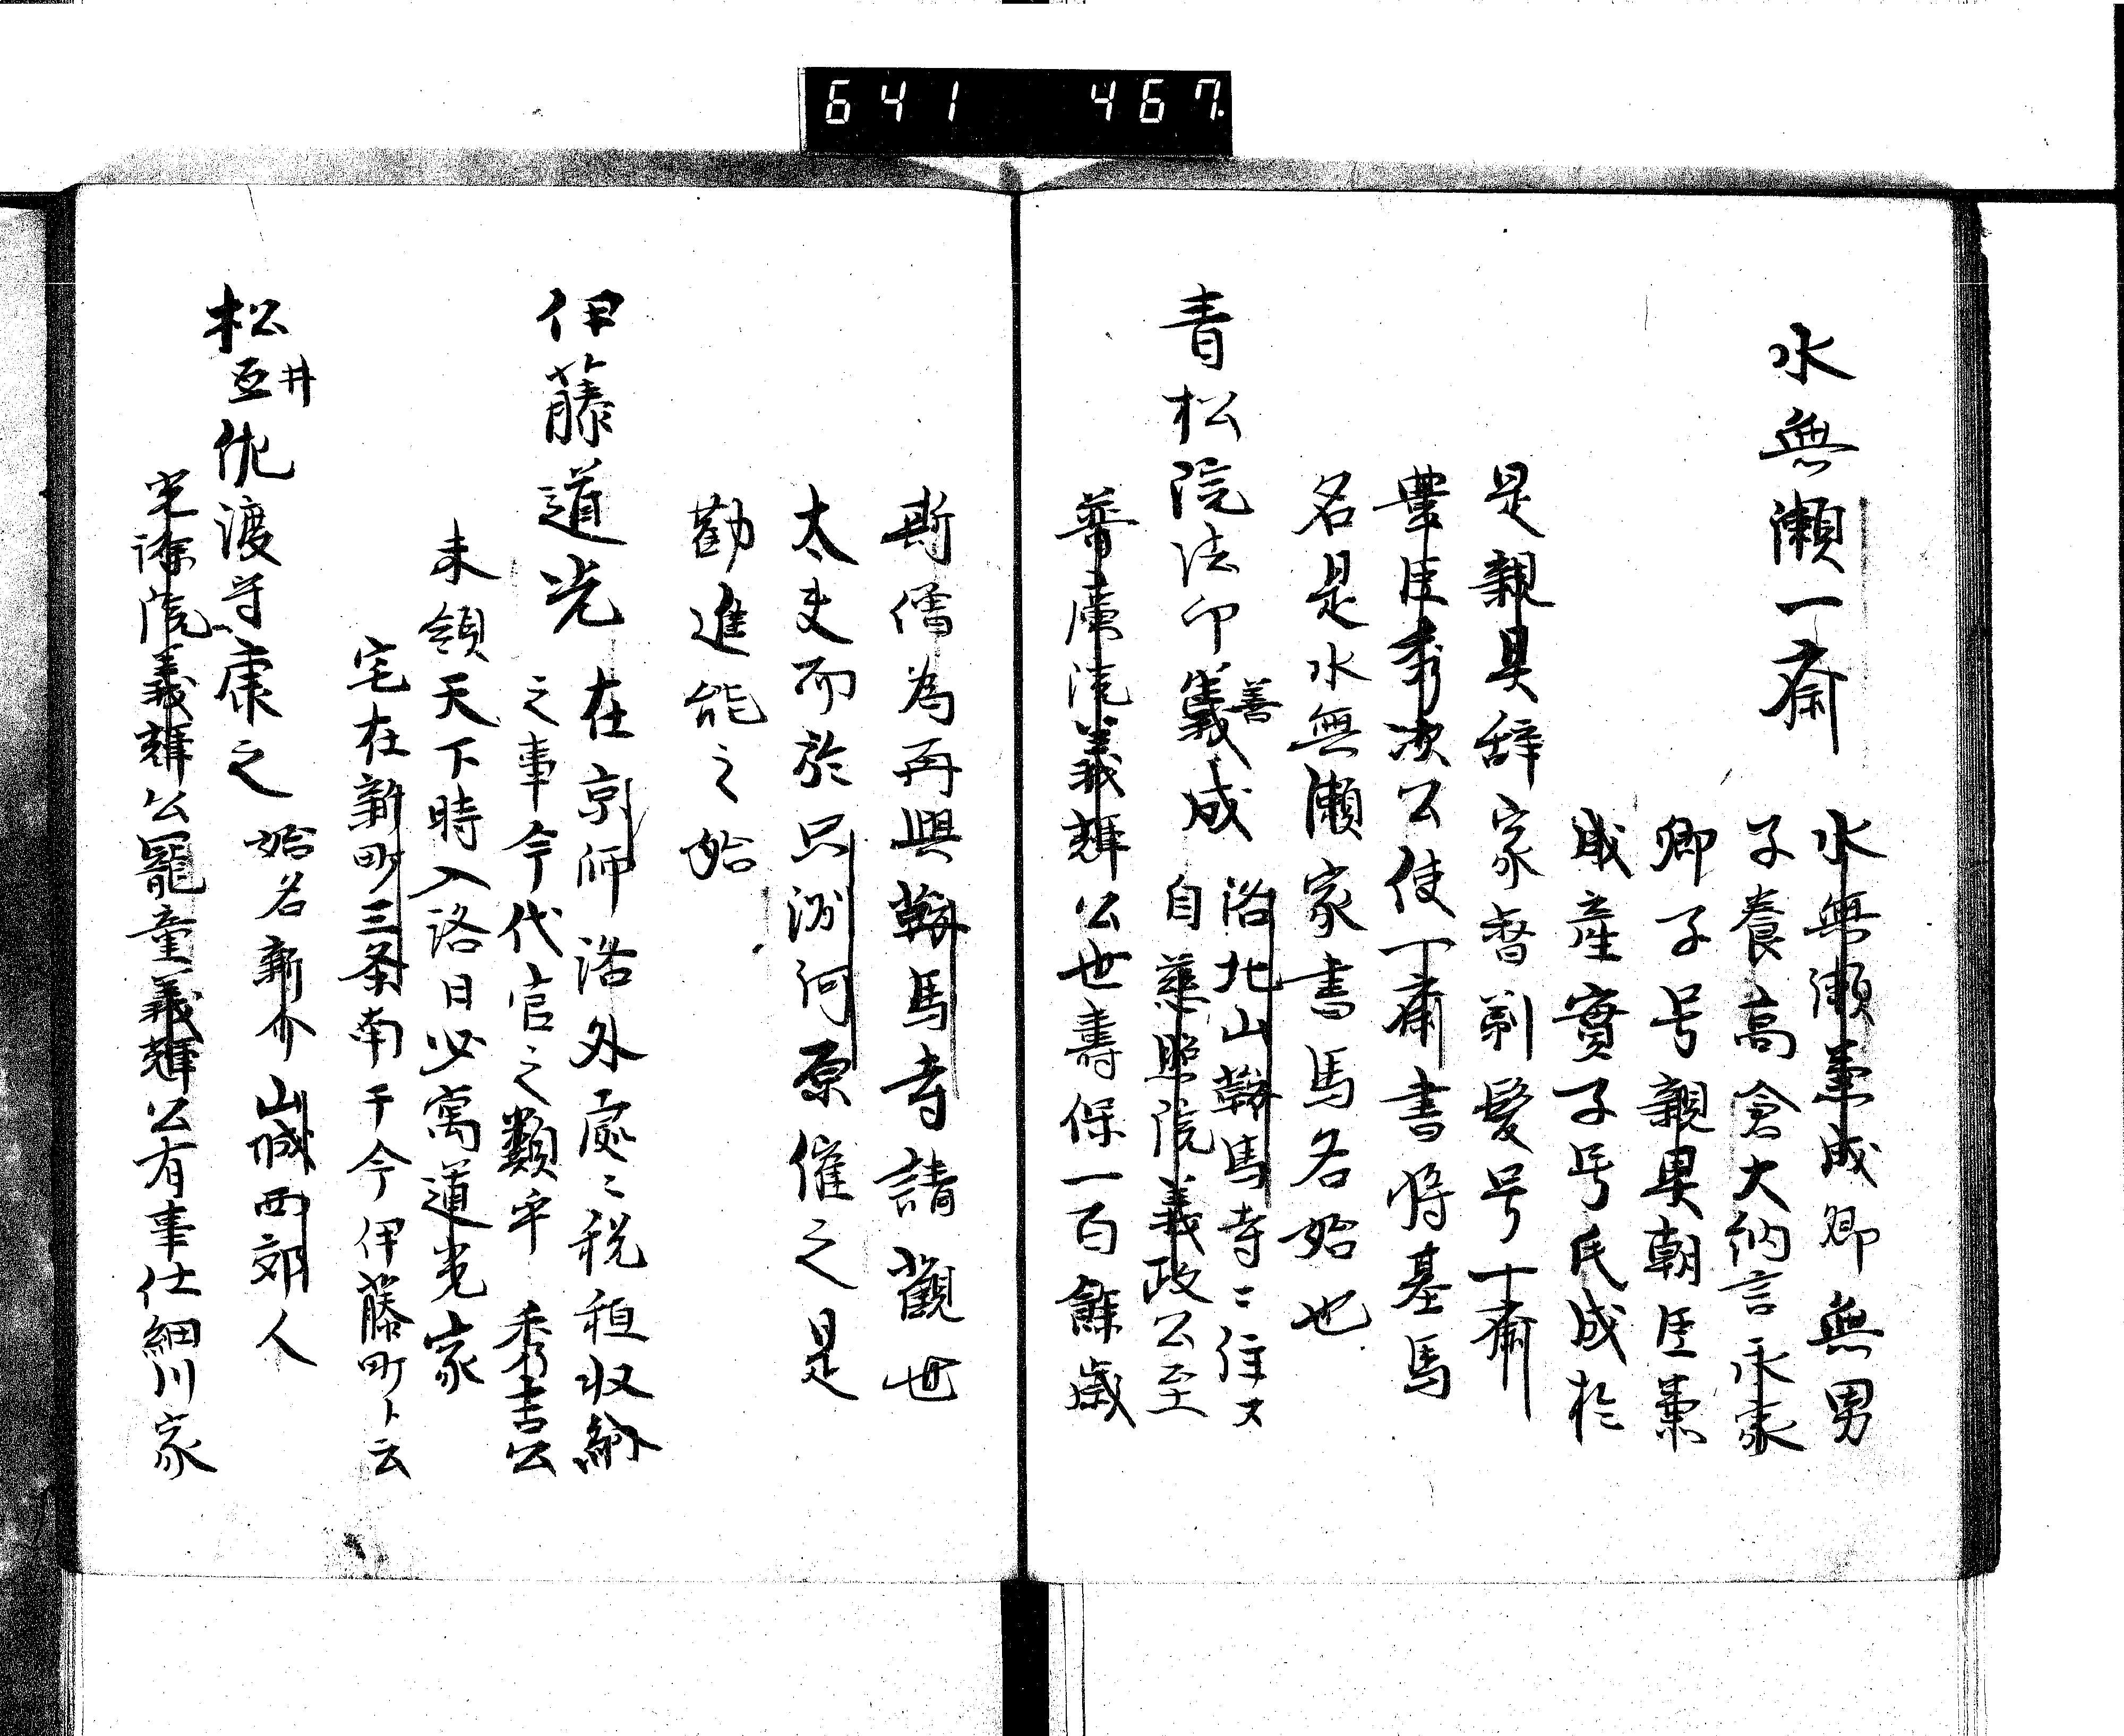 641 467.
水無瀬一斎
水無瀬兼成卿無男
子養高倉大納言永家
卿子号親具朝臣兼
成産實子号氏成於
是親具辞家督剃髪号一斎
豊臣秀次公使一斎書将基馬
名是水無瀬家書馬名始也
青松院法印義成
善
洛北山鞍馬寺ニ住ス
自慈照院義政公至
普廣院義輝公世壽保一百餘歳
斯僧為再興鞍馬寺請観世
太夫而於只洲河原催之是
勧進能之始
伊藤道光
在京師洛外處々税租収納
之事今代官之類乎 秀吉公
未領天下時入洛日必寓道光家
宅在新町三条南于今伊藤町ト云
松井佐渡守康之
始名新介山城西郊人
光源院義輝公寵童義輝公有事仕細川家